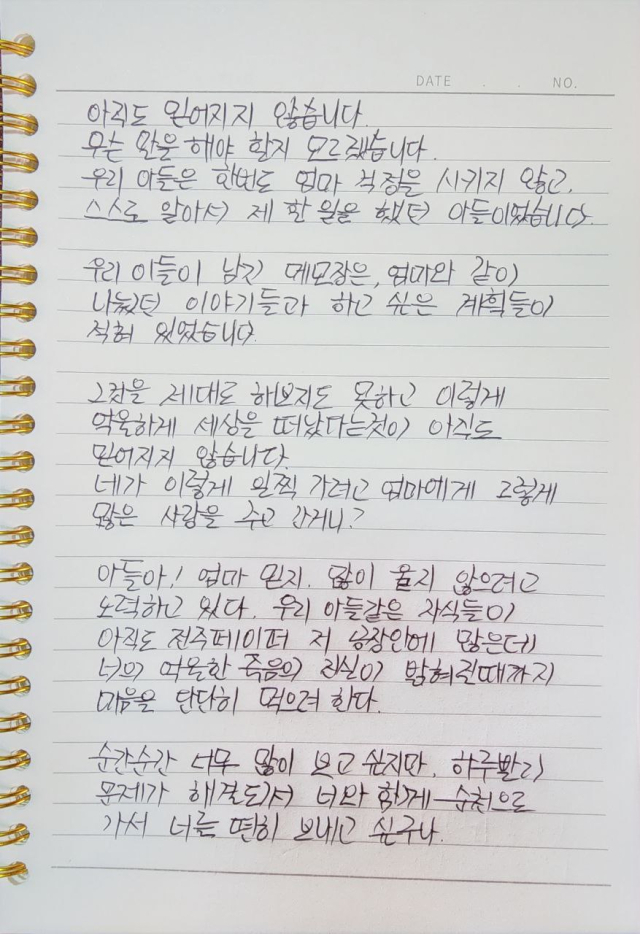 DATE . . NO.
아직도 믿어지지 않습니다.
무슨 말을 해야 할지 모르겠습니다.
우리 아들은 한번도 엄마 걱정을 시키지 않고,
스스로 알아서 제 할 일을 했던 아들이었습니다.
우리 아들이 남긴 메모장은, 엄마와 같이
나눴던 이야기들과 하고 싶은 계획들이
적혀 있었습니다.
그것을 제대로 해보지도 못하고 이렇게
억울하게 세상을 떠났다는것이 아직도
믿어지지 않습니다.
네가 이렇게 일찍 가려고 엄마에게 그렇게
많은 사랑을 주고 간거니?
아들아! 엄마 믿지. 많이 울지 않으려고
노력하고 있다. 우리 아들같은 자식들이
아직도 전주페이퍼 저 공장안에 많은데
너의 억울한 죽음의 진실이 밝혀질때까지
마음을 단단히 먹으려 한다.
순간순간 너무 많이 보고 싶지만, 하루빨리
문제가 해결되서 너와 함께 순천으로
가서 너를 편히 보내고 싶구나.